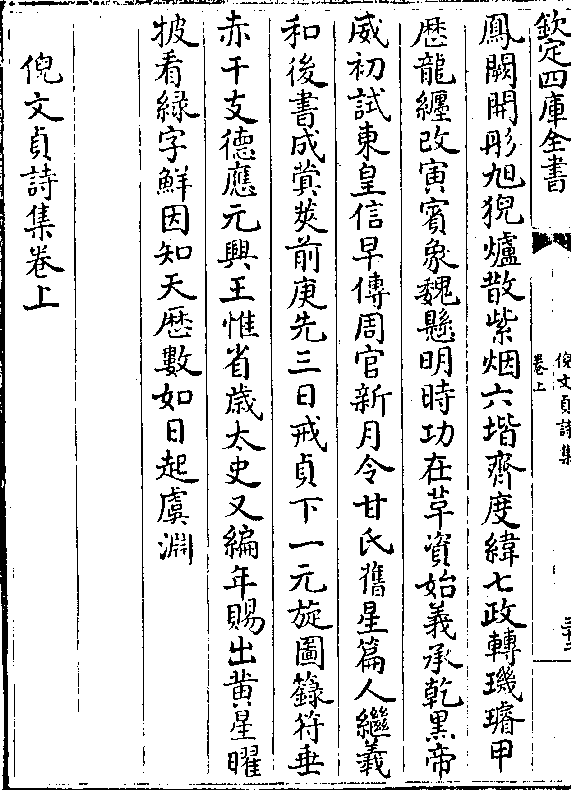 欽定四庫全書
倪文貞詩集
卷上
三十二
鳳闕開彤旭猊爐散紫烟六堦齊度緯七政轉璣璿甲
歴龍纒改寅賓象魏懸明時功在革資始義承乾黒帝
威初試東皇信早傳周官新月令甘氏舊星篇人繼羲
和後書成蓂莢前庚先三日戒貞下一元旋圖籙符垂
赤干支德應元興王惟省歳太史又編年賜出黄星曜
披看緑字鮮因知天歴數如日起虞淵
倪文貞詩集卷上